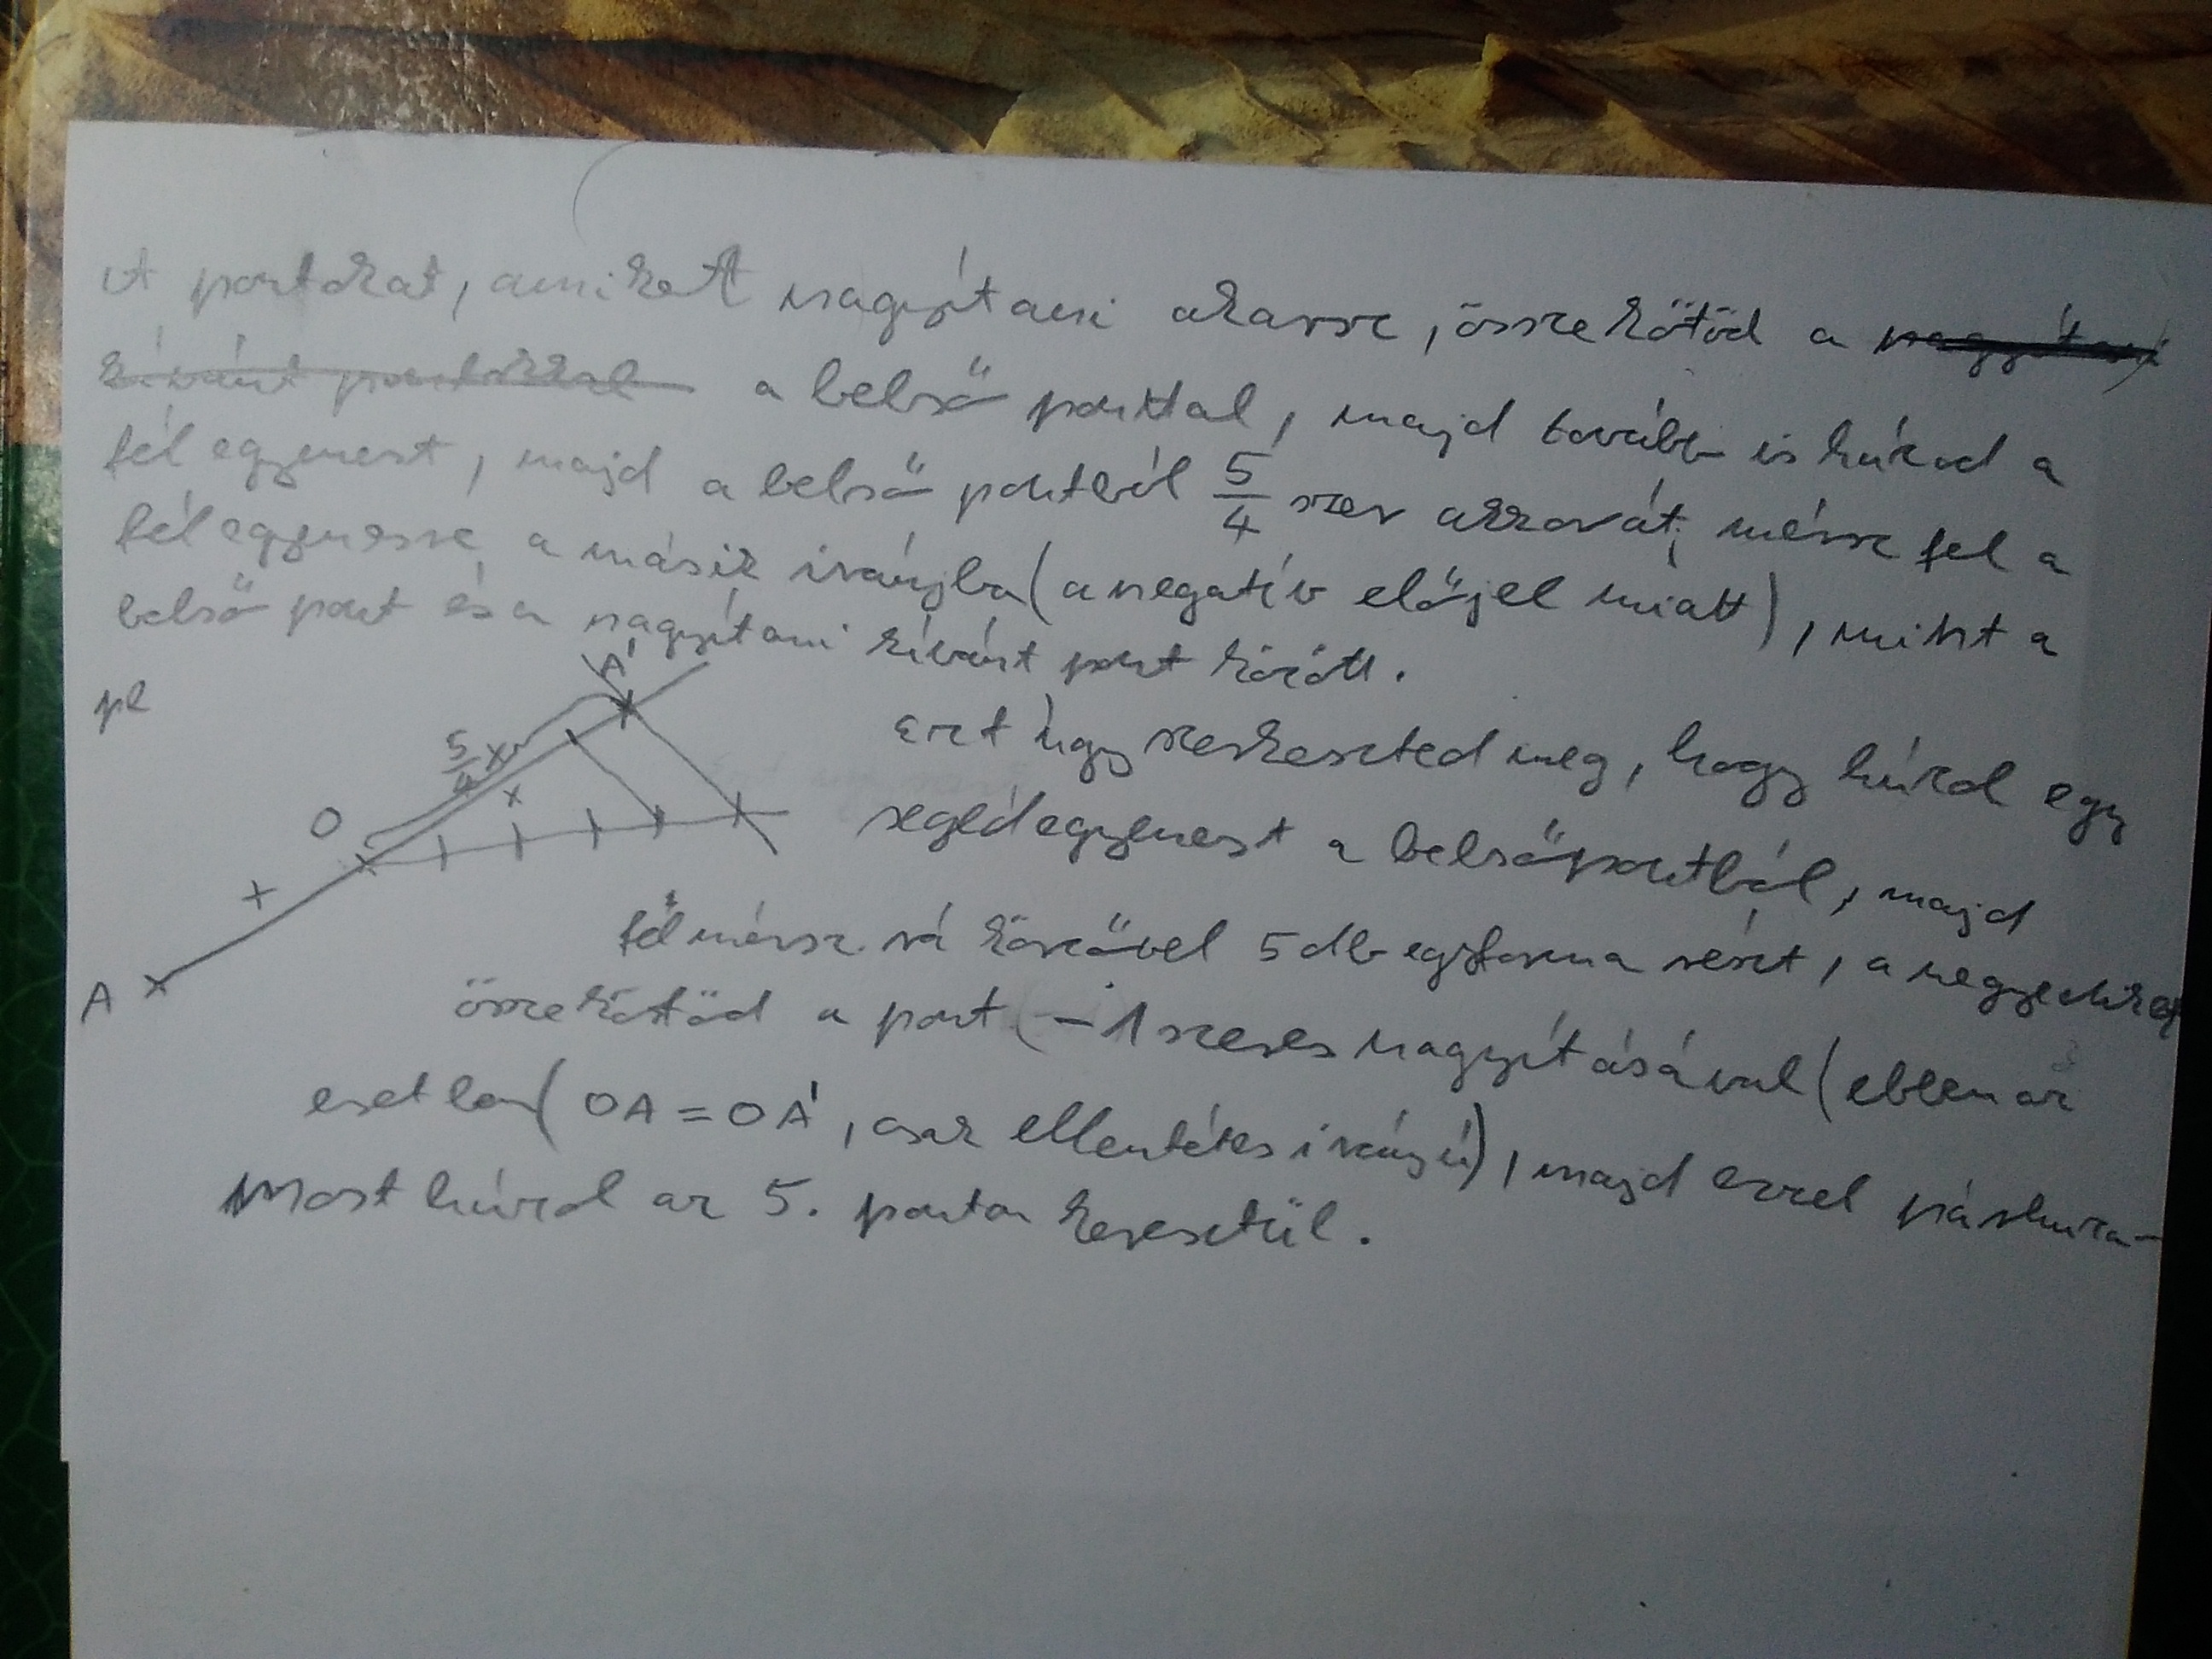 A pontokat, amiket nagyítani akarsz, összekötöd a nagyítani
kívánt pontokkal a belső ponttal, majd tovább is húzod a
fél egyenest, majd a belső pontból 5/4 szer akkorát, mérsz fel a
fél egyenesre, a másik irányba (a negatív előjel miatt), mint a
belső pont és a nagyítani kívánt pont között.
pl
A'
5/4 x
x
O
x
A
ezt úgy szerkeszted meg, hogy húzol egy
segédegyenest a belsőpontból, majd
felmérsz rá körzővel 5 db egyforma részt, a negyediket
összekötöd a pont -1 szeres nagyításával (ebben az
esetben (OA = OA', csak ellentétes irányú), majd ezzel párhuza-
most húzol az 5. ponton keresztül.